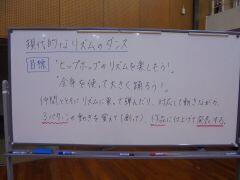 現代的なリズムのダンス
目標 "ヒップホップのリズムを楽しもう!"
"全身を使って大きく踊ろう!"
仲間とともにリズムに乗って弾んだり、対応して動きながら、
3パターンの動きを覚えて(創って)、作品に仕上げて発表する。